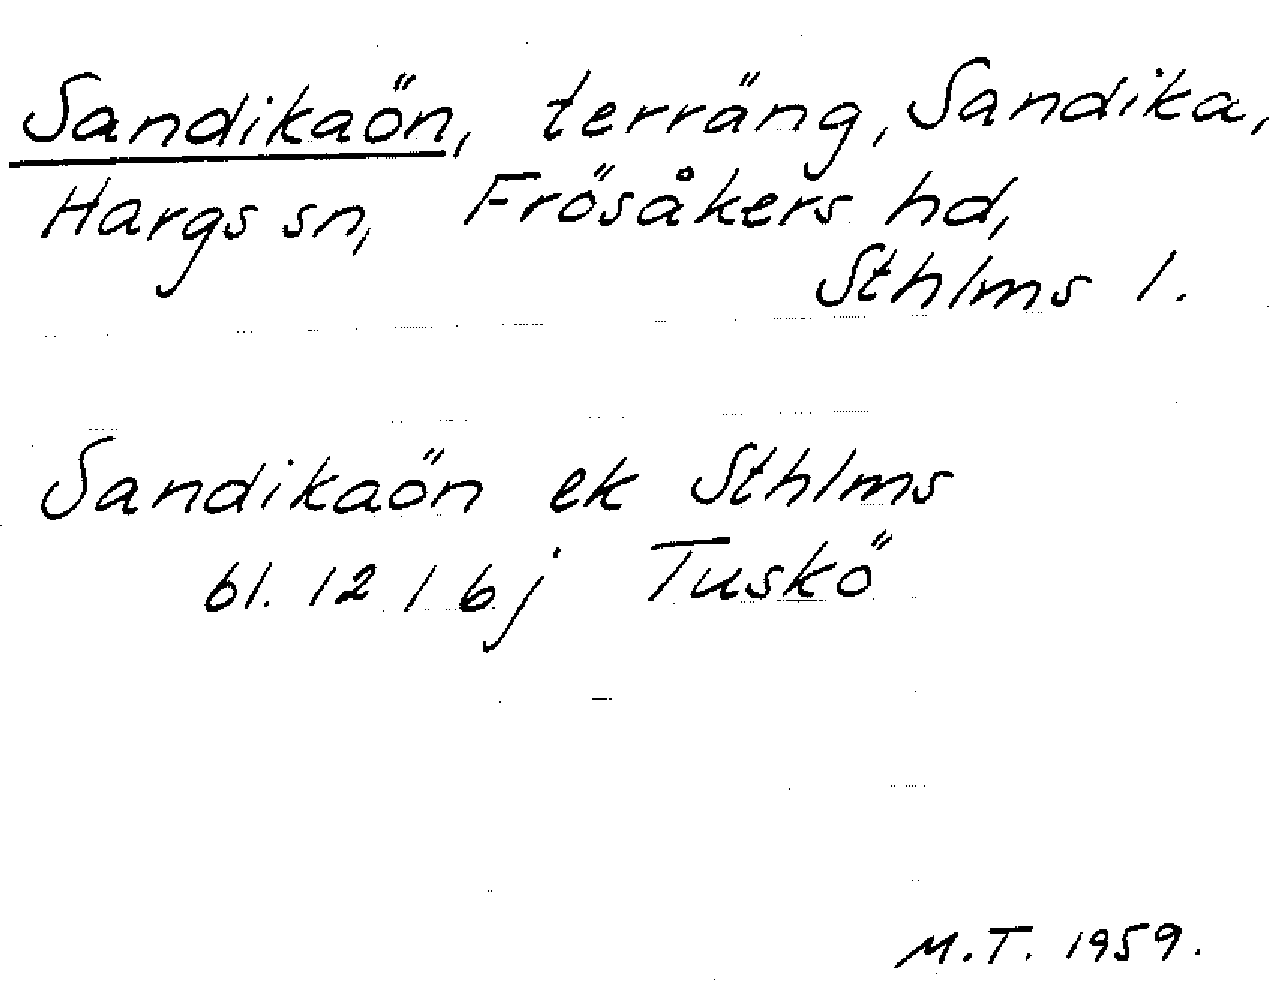 Sandikaön, terräng, Sandika,
Hargs sn, Frösåkers hd,
Sthlms l.
Sandikaön ek Sthlms
bl. 12 I 6 j Tuskö
M.T. 1959.